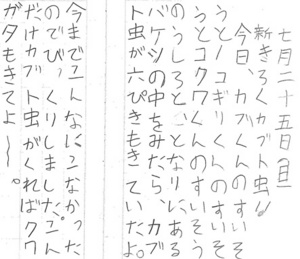 七月二十五日(日)
新きろくカブト虫!!
今日、カブトくんのすいそ
うとノコギリくんのすいそ
うとコクワくんのすいそう
のうしろと、となりにある
バケツの中をみたら、カブ
ト虫が六ぴきもきていたよ。
今までこんなにこなかった
のでびっくりしました。こん
だけカブト虫がくればクワ
ガタもきてよ〜〜。